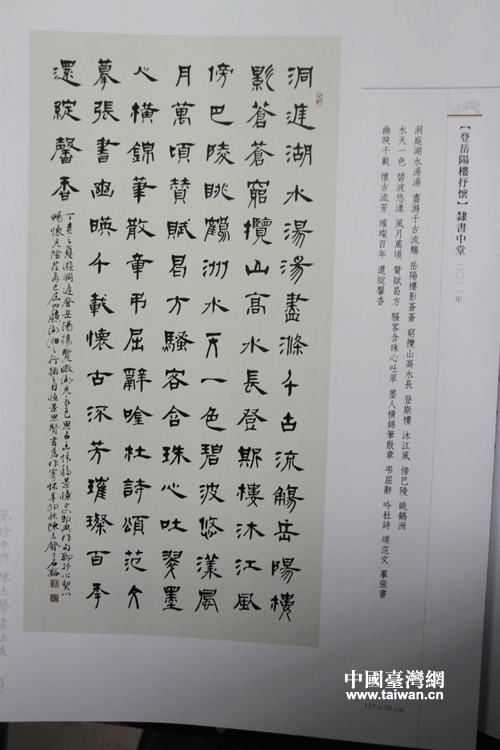 【登岳陽樓抒懷】隸書中堂 二〇一一年
洞庭湖水湯湯 盡滌千古流觴 岳陽樓影蒼蒼 窮攬山高水長 登斯樓 沐江風 傍巴陵 眺鶴洲
水天一色 碧波悠漾 風月萬頃 贊賦曷方 騷客含珠心吐翠 墨人橫錦筆散章 弔屈辭 吟杜詩 頌范文 摹張書
幽映千載 懷古流芳 璀璨百年 還綻馨香
洞庭湖水湯湯盡滌千古流觴岳陽樓
影蒼蒼窮攬山高水長登斯樓沐江風
傍巴陵眺鶴洲水天一色碧波悠漾風
月萬頃贊賦曷方騷客含珠心吐翠墨
人橫錦筆散章弔屈辭吟杜詩頌范文
摹張書幽映千載懷古流芳璀璨百年
還綻馨香
137 × 70 cm
中國臺灣網
www.taiwan.cn